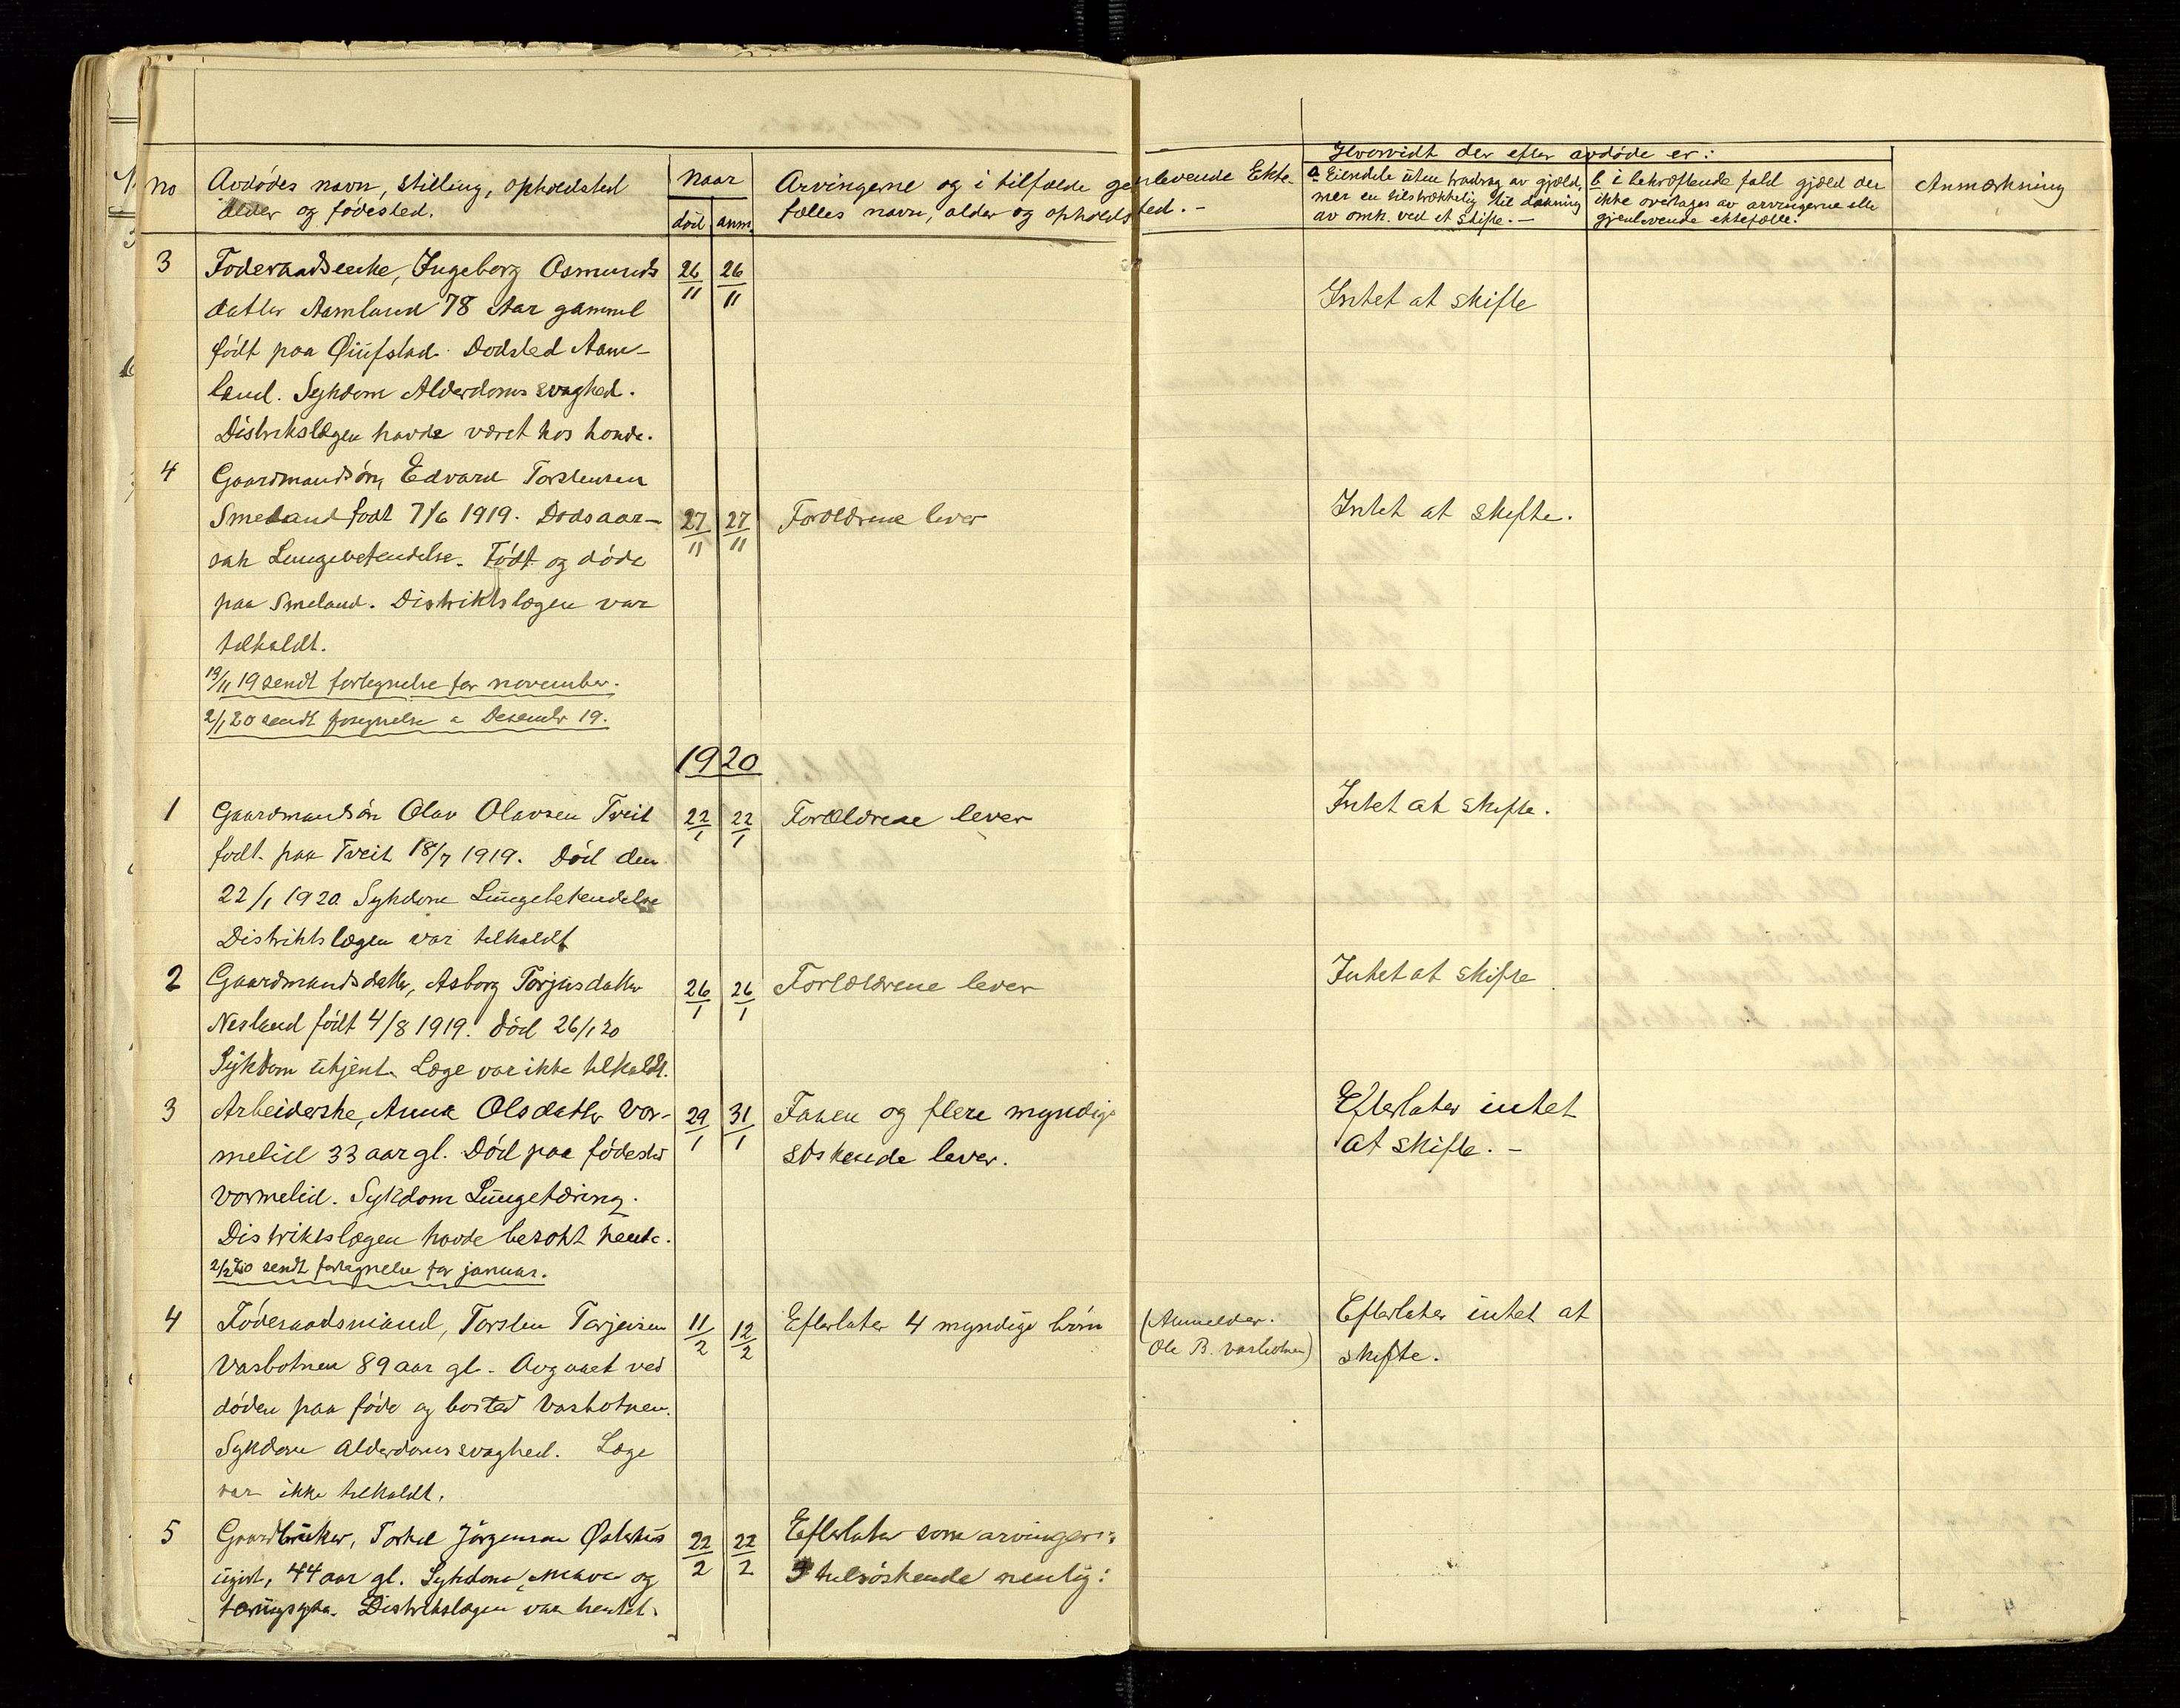 no
Avdödes navn, stilling, opholdsted
alder og födested.
naar
död
anm.
Arvingerne og i tilfælde genlevende Ekte-
fælles navn, alder og opholdsted. -
Hvorvidt der efter avdöde er:
a Eiendele uten fradrag av gjæld,
mer en tilstrækkelig til dækning
av omk. ved et skifte. -
b i bekræftende fald gjæld der
ikke overtages av arvingerne elle
gjenlevende ektefælle.
Anmærkning
3
Foderaadsenke, Ingeborg Osmunds
datter Aamland 78 Aar gammel
födt paa Dödsted Aam-
land. Sykdom Alderdoms svaghed.
Distrikslægen havde været hos hende.
26/11
26/11
Intet at skifte
4
Gaardmandsön, Edvard Torstensen
Smeland födt 7/6 1919. Dödsaar-
sak Lungebetendelse. Födt og döde
paa Smeland. Distriktslægen var
tilkaldt.
27/11
27/11
Forældrene lever
Intet at skifte.
19/11 19 sendt fortegnelse for november.
2/1 20 sendt a Desember 19.
1920
1
Gaardmandsön Olav Olavsen Tveit
födt paa Tveit 18/7 1919. Död den
22/1 1920 Sykdom Lungebetendelse
Distriktslægen var tilkaldt
22/1
22/1
Forældrene lever
Intet at skifte.
2
Gaardmandsdatter, Asborg Torjusdatter
Nesland födt 4/8 1919. Död 26/1 20
Sykdom ukjent. Læge var ikke tilkaldt.
26/1
26/1
Forældrene lever
Intet at skifte
3
Arbeiderske, Anna Olsdatter Vor-
melid 33 aar gl. Död paa födested
Vormelid. Sykdom Lungetæring.
Distriktslægen havde besökt hende.
29/1
31/1
Faren og flere myndige
söskende lever.
Efterlater intet
at skifte. -
2/2 20 sendt fortegnelse for januar.
4
Föderaadsmand, Torsten Tarjeisen
Vasbotnen 89 aar gl. Avgaaet ved
döden paa föde og bosted Vasbotnen.
Sykdom alderdomssvaghed. Læge
var ikke tilkaldt.
11/2
12/2
Efterlater 4 myndige börn
(Anmelder.
Ole B. Vasbotnen)
Efterlater intet at
skifte.
5
Gaardbruker, Torkel Jörgensen Österhus
ugivt, 44 aar gl. Sykdom, mave og
Distrikslægen var hentet.
22/2
22/2
Efterlater som arvinger:
3 helsöskende nemlig: